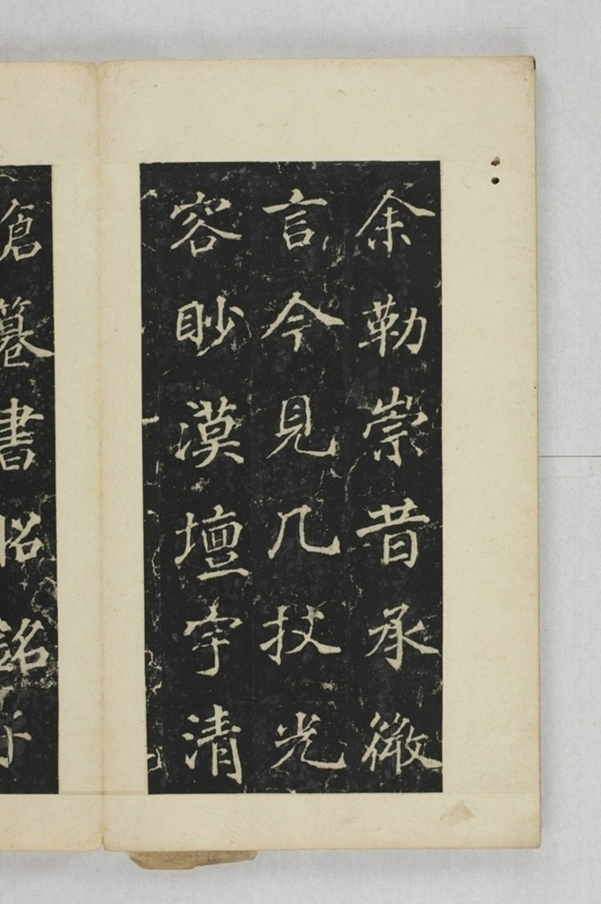 余勒崇昔承微
言今見几杖光
容眇漠壇宇清
書昭銘